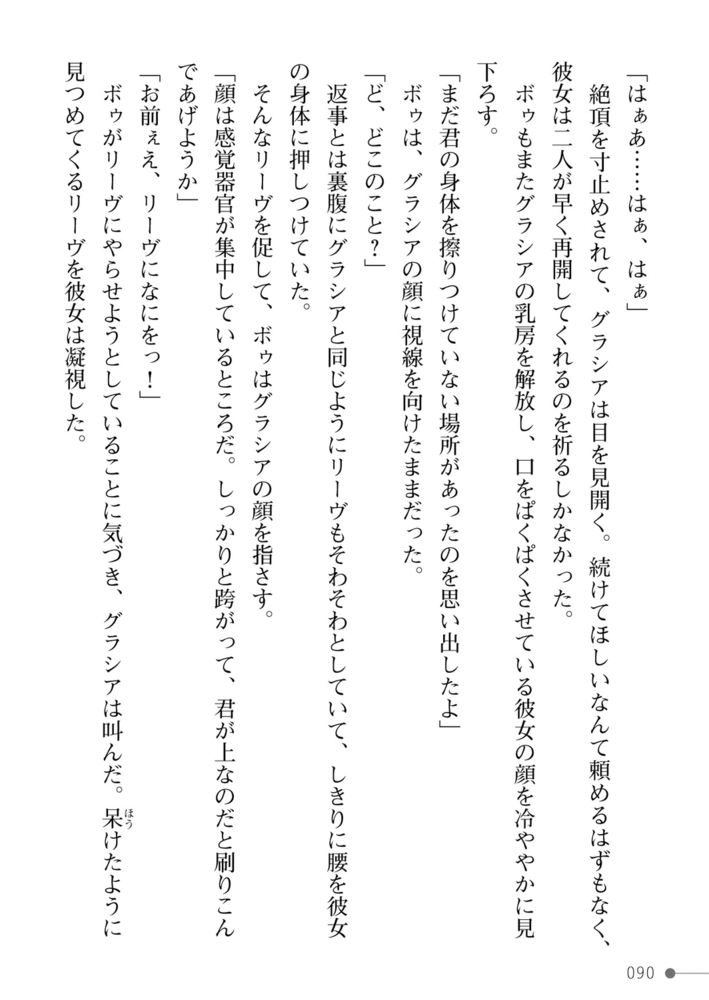 「はぁあ……はぁ、はぁ」
　絶頂を寸止めされて、グラシアは目を見開く。続けてほしいなんて頼めるはずもなく、
彼女は二人が早く再開してくれるのを祈るしかなかった。
　ボゥもまたグラシアの乳房を解放し、口をぱくぱくさせている彼女の顔を冷ややかに見
下ろす。
「まだ君の身体を擦りつけていない場所があったのを思い出したよ」
　ボゥは、グラシアの顔に視線を向けたままだった。
「ど、どこのこと？」
　返事とは裏腹にグラシアと同じようにリーヴもそわそわとしていて、しきりに腰を彼女
の身体に押しつけていた。
　そんなリーヴを促して、ボゥはグラシアの顔を指さす。
「顔は感覚器官が集中しているところだ。しっかりと跨がって、君が上なのだと刷りこん
であげようか」
「お前ぇえ、リーヴになにをっ！」
　ボゥがリーヴにやらせようとしていることに気づき、グラシアは叫んだ。呆けたように
ほう
見つめてくるリーヴを彼女は凝視した。
090